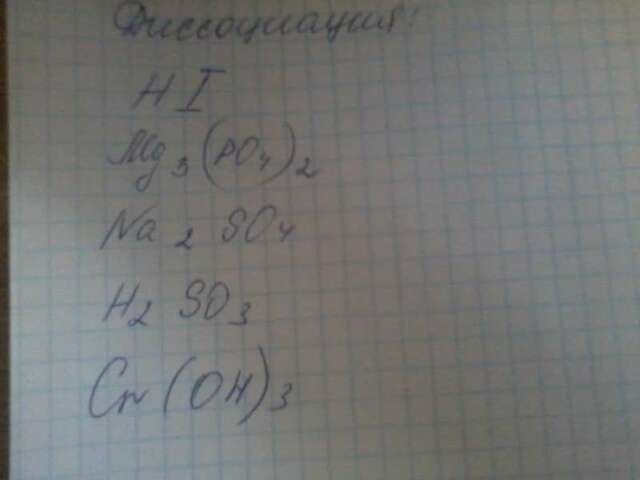 Диссоциация:
HI
Mg3(PO4)2
Na2SO4
H2SO3
Cr(OH)3